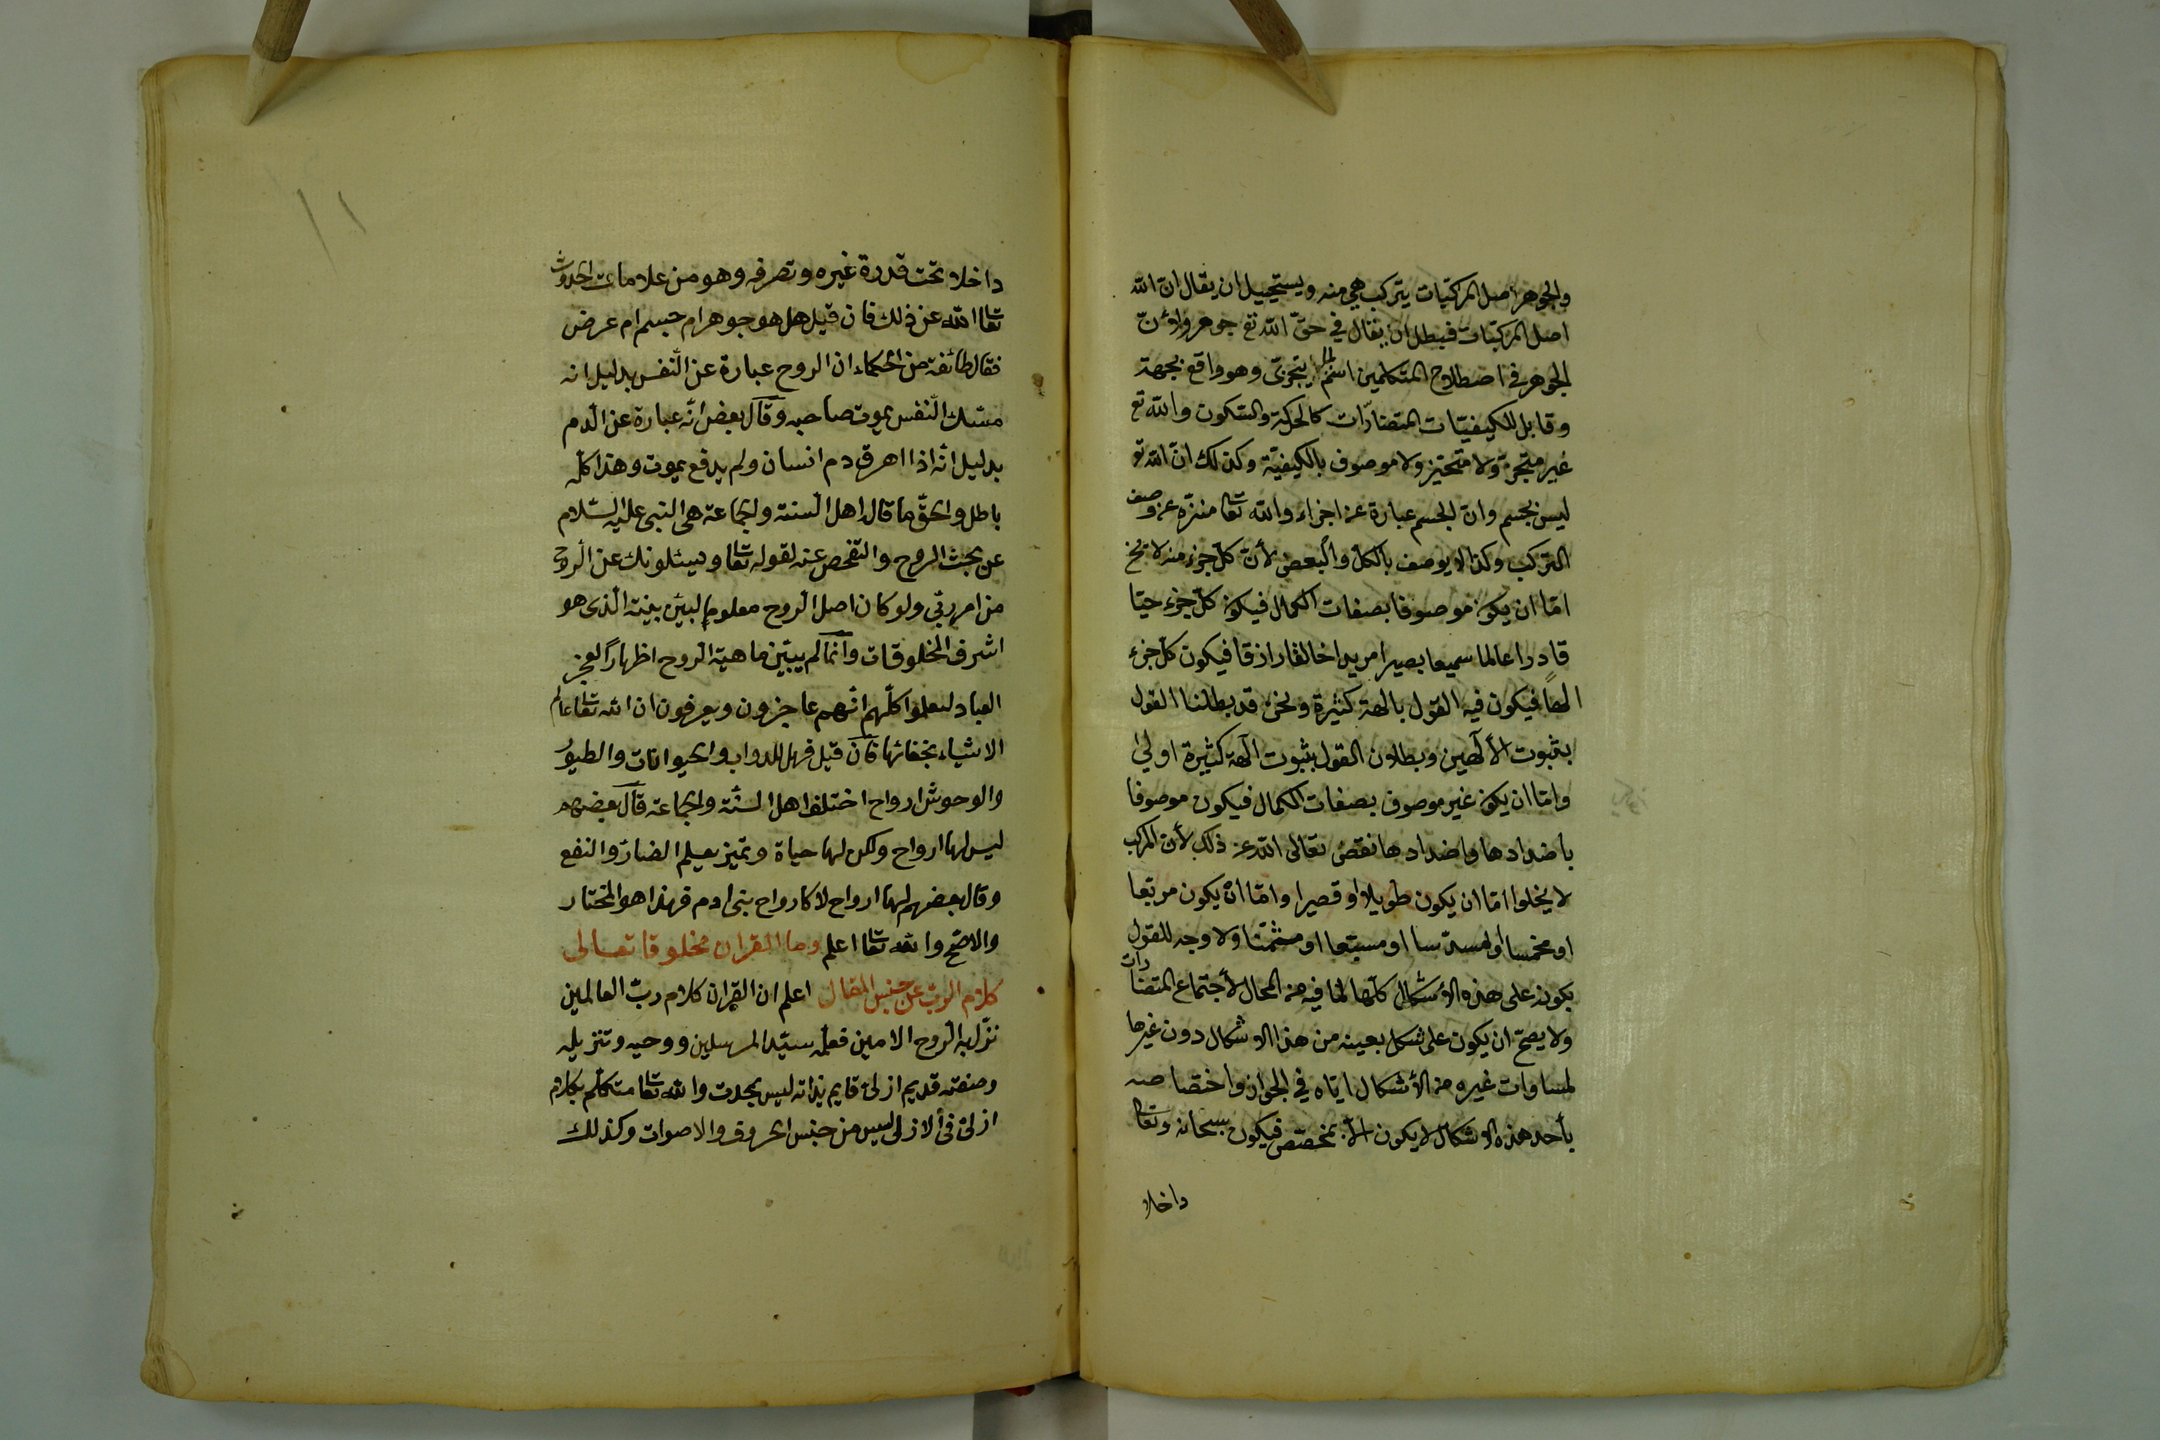 والجوهر اصل المركبات يتركب هي منه ويستحيل ان يقال ان الله
اصل المركبات فبطل ان يقال في حق الله تع جوهر ولان
الجوهر في اصطلاح المتكلمين اسم لما يتجزى وهو واقع بجهة
وقابل للكيفيات المتضادات كالحركة والسكون والله تع
غير متجز ولا متحيز ولا موصوف بالكيفية وكذلك ان الله تع
ليس بجسم وان الجسم عبارة عن اجزاء والله تعا منزه عن وصف
التركب وكذا لا يوصف بالكل والبعض لأن كل جزء منه لا يخ
اما ان يكون موصوفا بصفات الكمال فيكون كل جزء حيا
قادرا عالما سميعا بصيرا مريدا خالقا رازقا فيكون كل جزء
الهاً فيكون فيه القول بالهة كثيرة ونحن قد بطلنا القول
بثبوت الألهين وبطلان القول بثبوت آلهة كثيرة اولى
واما ان يكون غير موصوف بصفات الكمال فيكون موصوفا
باضدادها واضدادها نقص تعالى الله عن ذلك لأن المركب
لا يخلوا اما ان يكون طويلا او قصيرا واما ان يكون مربعا
او مخمسا او مسدسا او مسبعا او مثمنا ولا وجه للقول
بكونه على هذه الأشكال كلها لما فيه من المحال لأجتماع المتضادات
ولا يصح ان يكون على شكل بعينه من هذا الاشكال دون غيرها
لمساوات غيره من الأشكال اياه في الجواز واختصاصه
بأحد هذه الاشكال لا يكون الا بمخصص فيكون سبحانه وتعا
داخلا
داخلا تحت قدرة غيره وتصرفه وهو من علامات الحدوث
تعا الله عن ذلك فان قيل هل هو جوهر ام جسم ام عرض
فقال طائفة من الحكماء ان الروح عبارة عن النفس بدليل انه
مسك النفس يموت صاحبه وقال بعض انه عبارة عن الدم
بدليل انه اذا اهرق دم انسان ولم يدفع يموت وهذا كله
باطل والحق ما قال اهل السنة والجماعة هى النبى عليه السلام
عن بحث الروح والتفحص عنه لقوله تعا ويسئلونك عن الروح
من امر ربي ولو كان اصل الروح معلوما لبين بينه الذى هو
اشرف المخلوقات وانما لم يبين ماهية الروح اظهاراً لعجز
العباد لتعلموا كلهم انهم عاجزون ويعرفون ان الله تعا عالم
الاشياء بخفائها فان قيل فهل للدواب والحيوانات والطيور
والوحوش ارواح اختلف اهل السنة والجماعة قال بعضهم
ليس لها ارواح ولكن لها حياة وتميز بعلم الضار والنفع
وقال بعضهم لها ارواح لا كارواح بنى ادم فهذا هو المختار
والاصح والله تعا اعلم وما القران مخلوقا تعالى
كلام الرب عن جنس المقال اعلم ان القران كلام رب العالمين
نزل به الروح الامين فعلمه سيد المرسلين ووحيه وتنزيله
وصفته قديم ازلى قايم بذاته ليس بحدث والله تعا متكلم بكلام
ازلى فى ألازل ليس من جنس الحروف والاصوات وكذلك